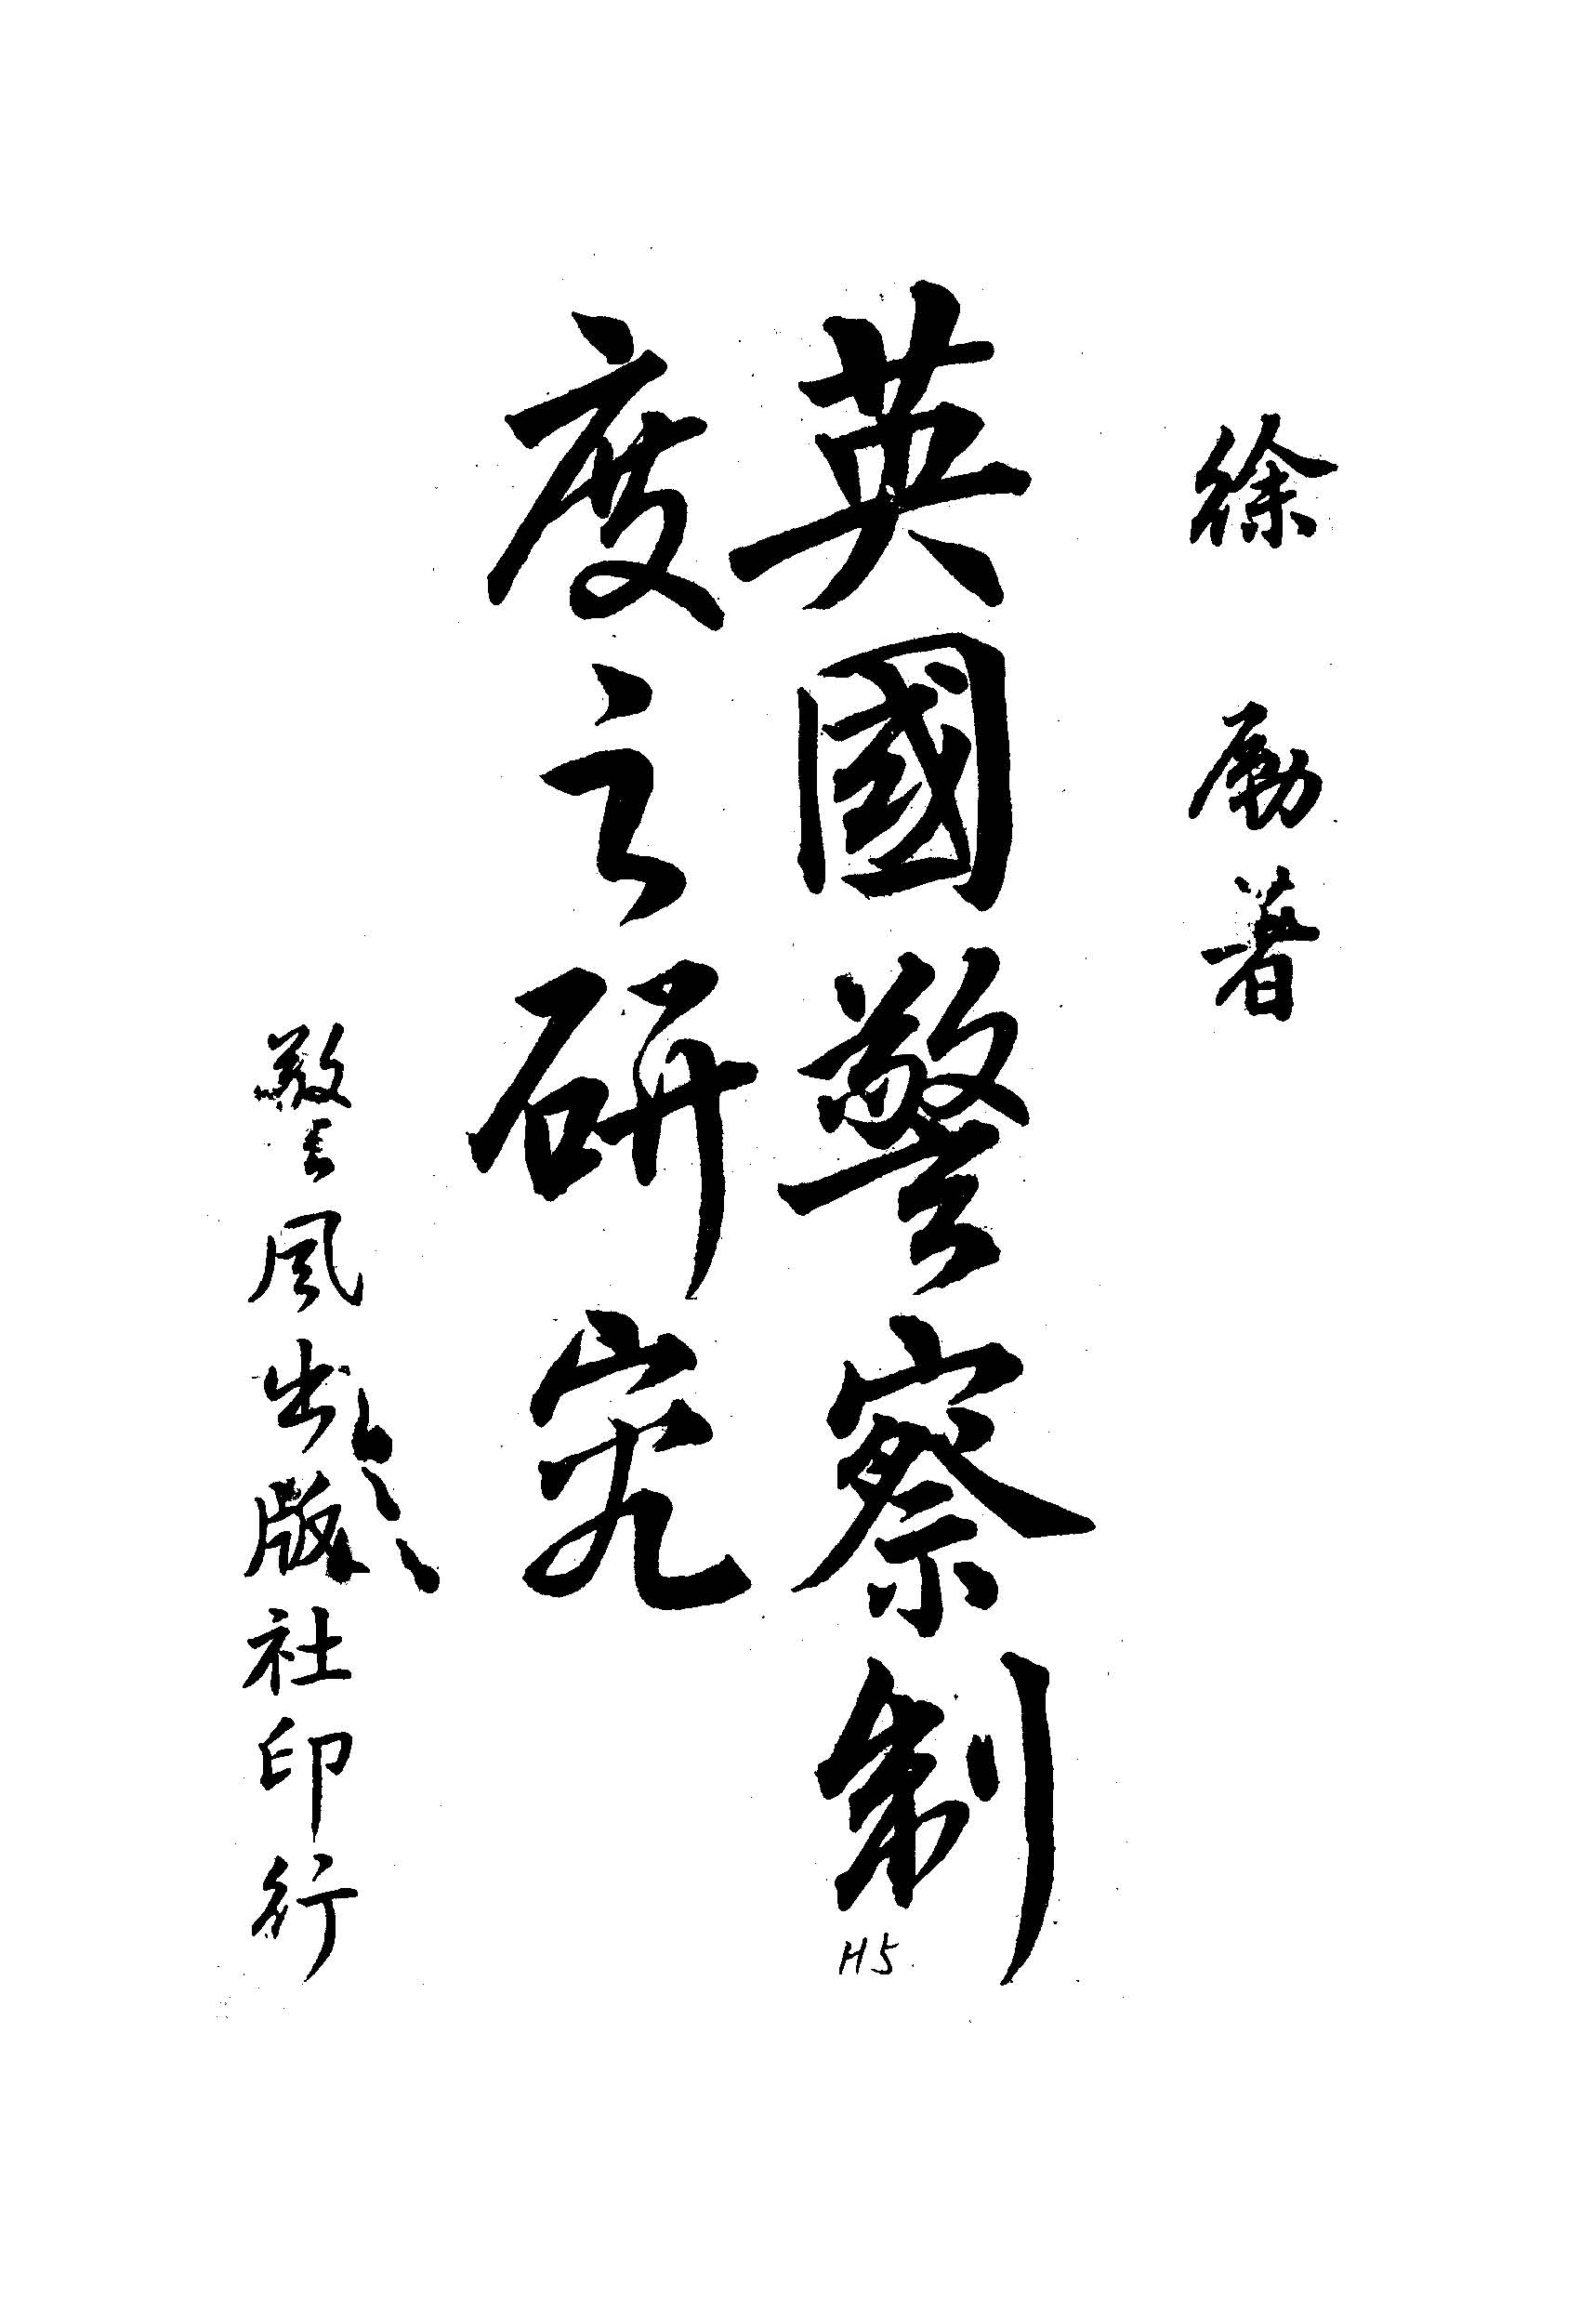 徐励著
英國警察制
度之研究
警風出版社印行
H5